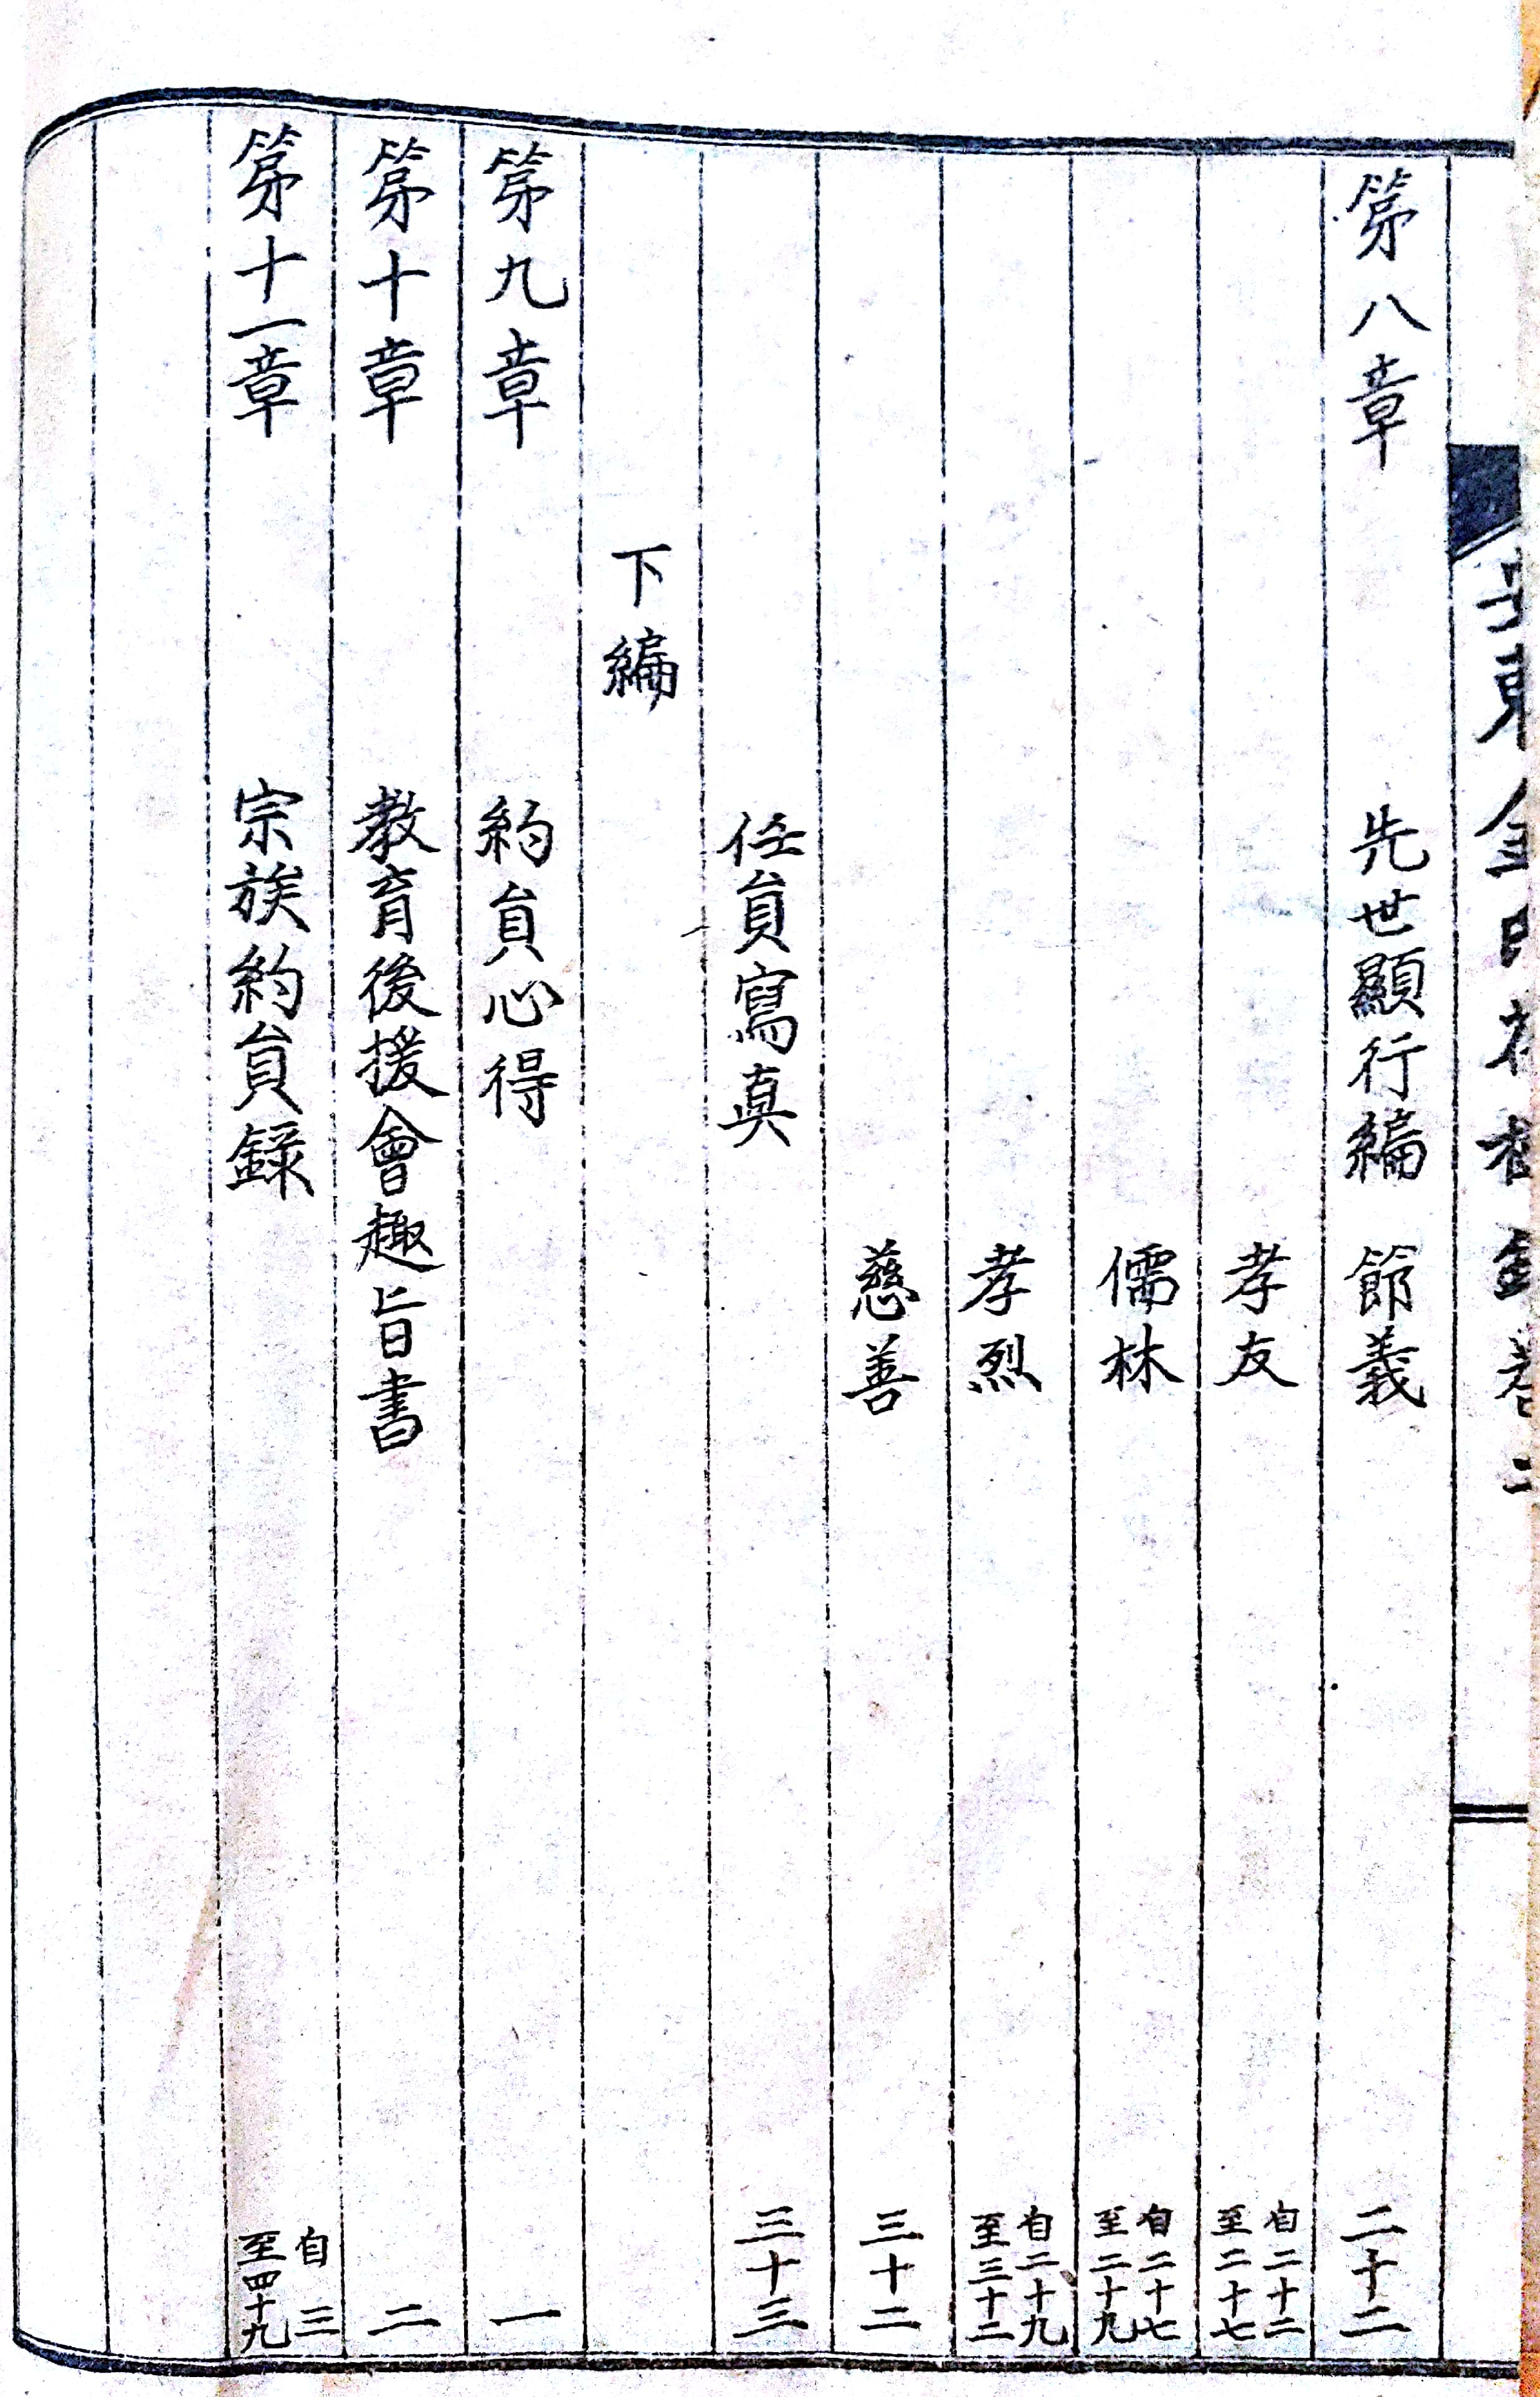 東金氏
第八章 先世顯行編 節義 二十二
孝友 自二十二 至二十七
儒林 自二十七 至二十九
孝烈 自二十九 至三十二
慈善 三十二
任員寫真 三十三
下編
第九章 約員心得 一
第十章 教育後援會趣旨書 二
第十一章 宗族約員錄 自三 至四十九